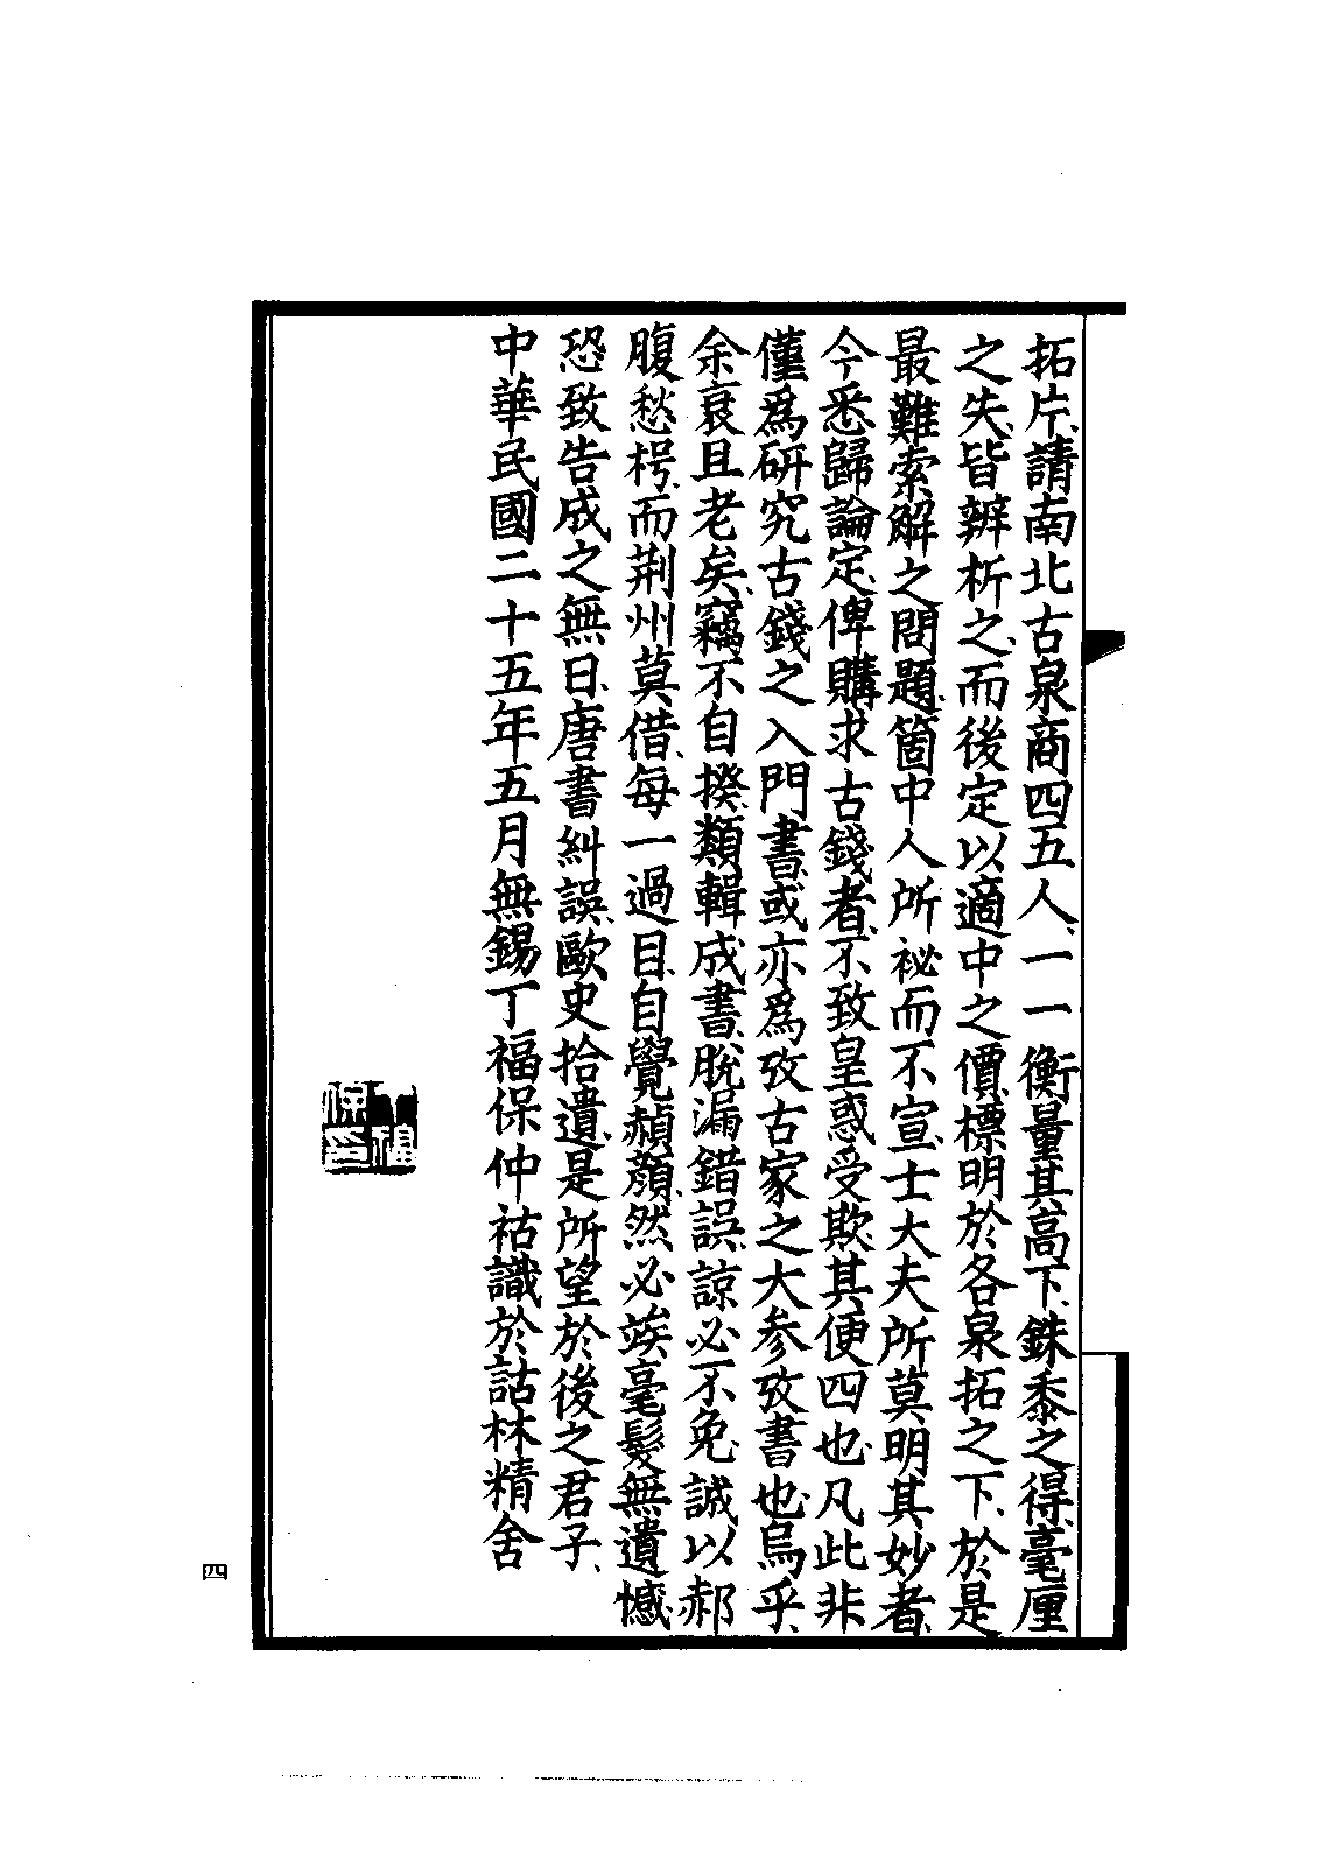 拓片、請南北古泉商四五人、一一衡量其高下、銖黍之得、毫厘
之失、皆辨析之、而後定以適中之價、標明於各泉拓之下、於是
最難索解之問題、箇中人所祕而不宣、士大夫所莫明其妙者、
今悉歸論定、俾購求古錢者、不致皇惑受欺、其便四也、凡此非
僅爲研究古錢之入門書、或亦爲攷古家之大參攷書也、烏乎、
余衰且老矣、竊不自揆、類輯成書、脫漏錯誤、諒必不免、誠以郝
腹愁枵、而荆州莫借、每一過目、自覺赬顏、然必俟毫髮無遺憾、
恐致告成之無日、唐書糾誤、歐史拾遺、是所望於後之君子、
中華民國二十五年五月無錫丁福保仲祜識於詁林精舍
丁福保印
四